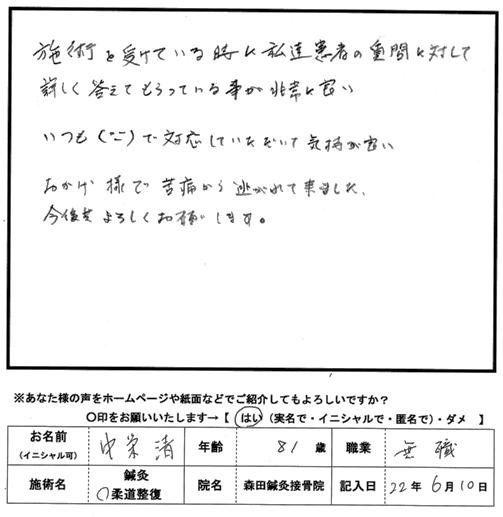 施術を受けている時に私達患者の重問に対して
詳しく答えてもらっている事が非常に宜い
いつも(^ニ^)で対応していただいて気持が宜い
おかげ様で苦痛から逃がれて来ました、
今後共よろしくお願いします。
※あなた様の声をホームページや紙面などでご紹介してもよろしいですか？
〇印をお願いいたします→【 はい (実名で・イニシャルで・匿名で)・ダメ 】
お名前 (イニシャル可) 中栄清 年齢 81 歳 職業 無職
施術名 鍼灸 〇柔道整復 院名 森田鍼灸接骨院 記入日 22年 6月10日